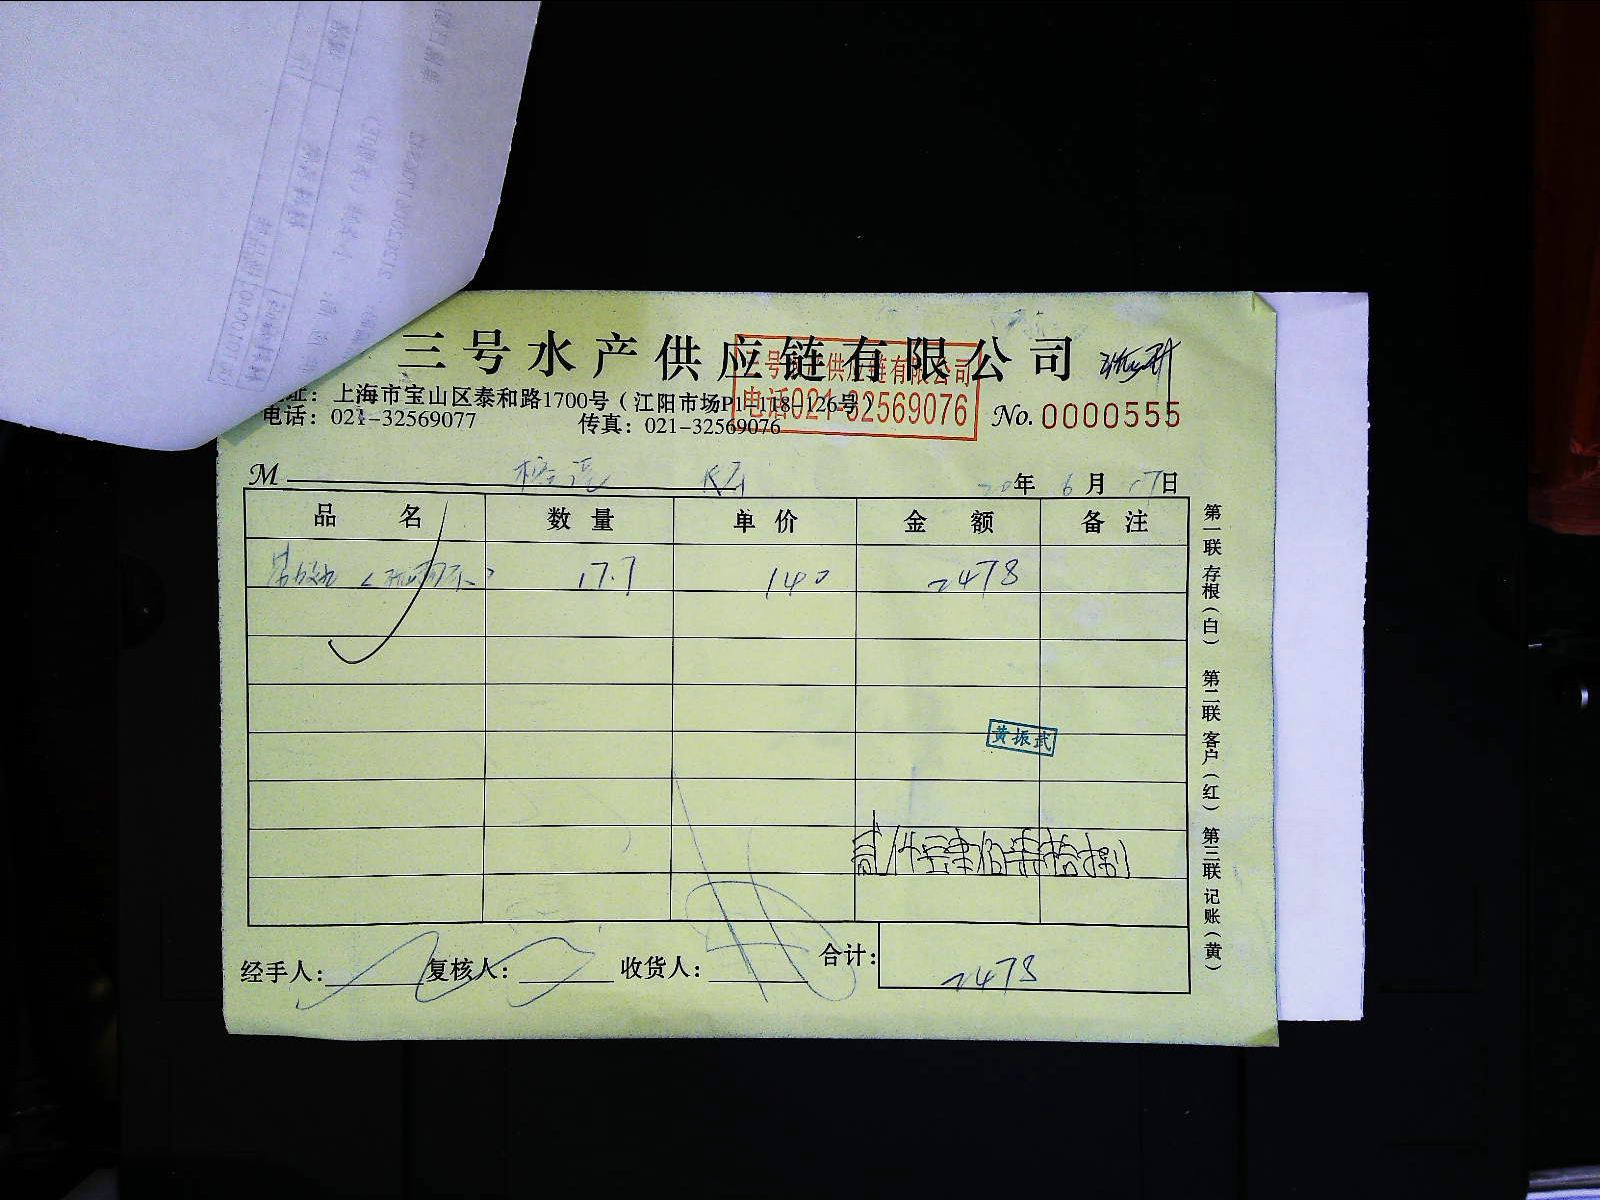 三号水产供应链有限公司
三号水产供应链有限公司
电话021-32569076
地址：上海市宝山区泰和路1700号（江阳市场P1-118-126号）
电话：021-32569077 传真：021-32569076
No. 0000555
M 20年 6月 17日
品名 数量 单价 金额 备注
17.7 140 2478
黄振武
贰仟肆佰柒拾捌
经手人： 复核人： 收货人： 合计： 2478
第一联 存根（白） 第二联 客户（红） 第三联 记账（黄）